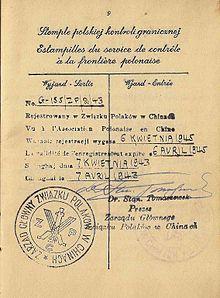 9
Stemple polskiej kontroli granicznej
Estampilles du service de contrôle
à la frontière polonaise
Wyjazd - Sortie Wjazd - Entrée
No. G-155/ZP/8/43
Rejestrowany w Związku Polaków w Chinach
Vu à l'Association Polonaise en Chine
Ważność rejestracji wygasa 6 KWIETNIA 1945
La validité de l'enregistrement expire 6 AVRIL 1945
Szanghaj, dnia 7 KWIETNIA 1943
Changhai le 7 AVRIL 1943
Dr. Stan. Tomaszewski
Prezes
Zarządu Głównego
Związku Polaków w Chinach
ZARZĄD GŁÓWNY ZWIĄZKU POLAKÓW W CHINACH